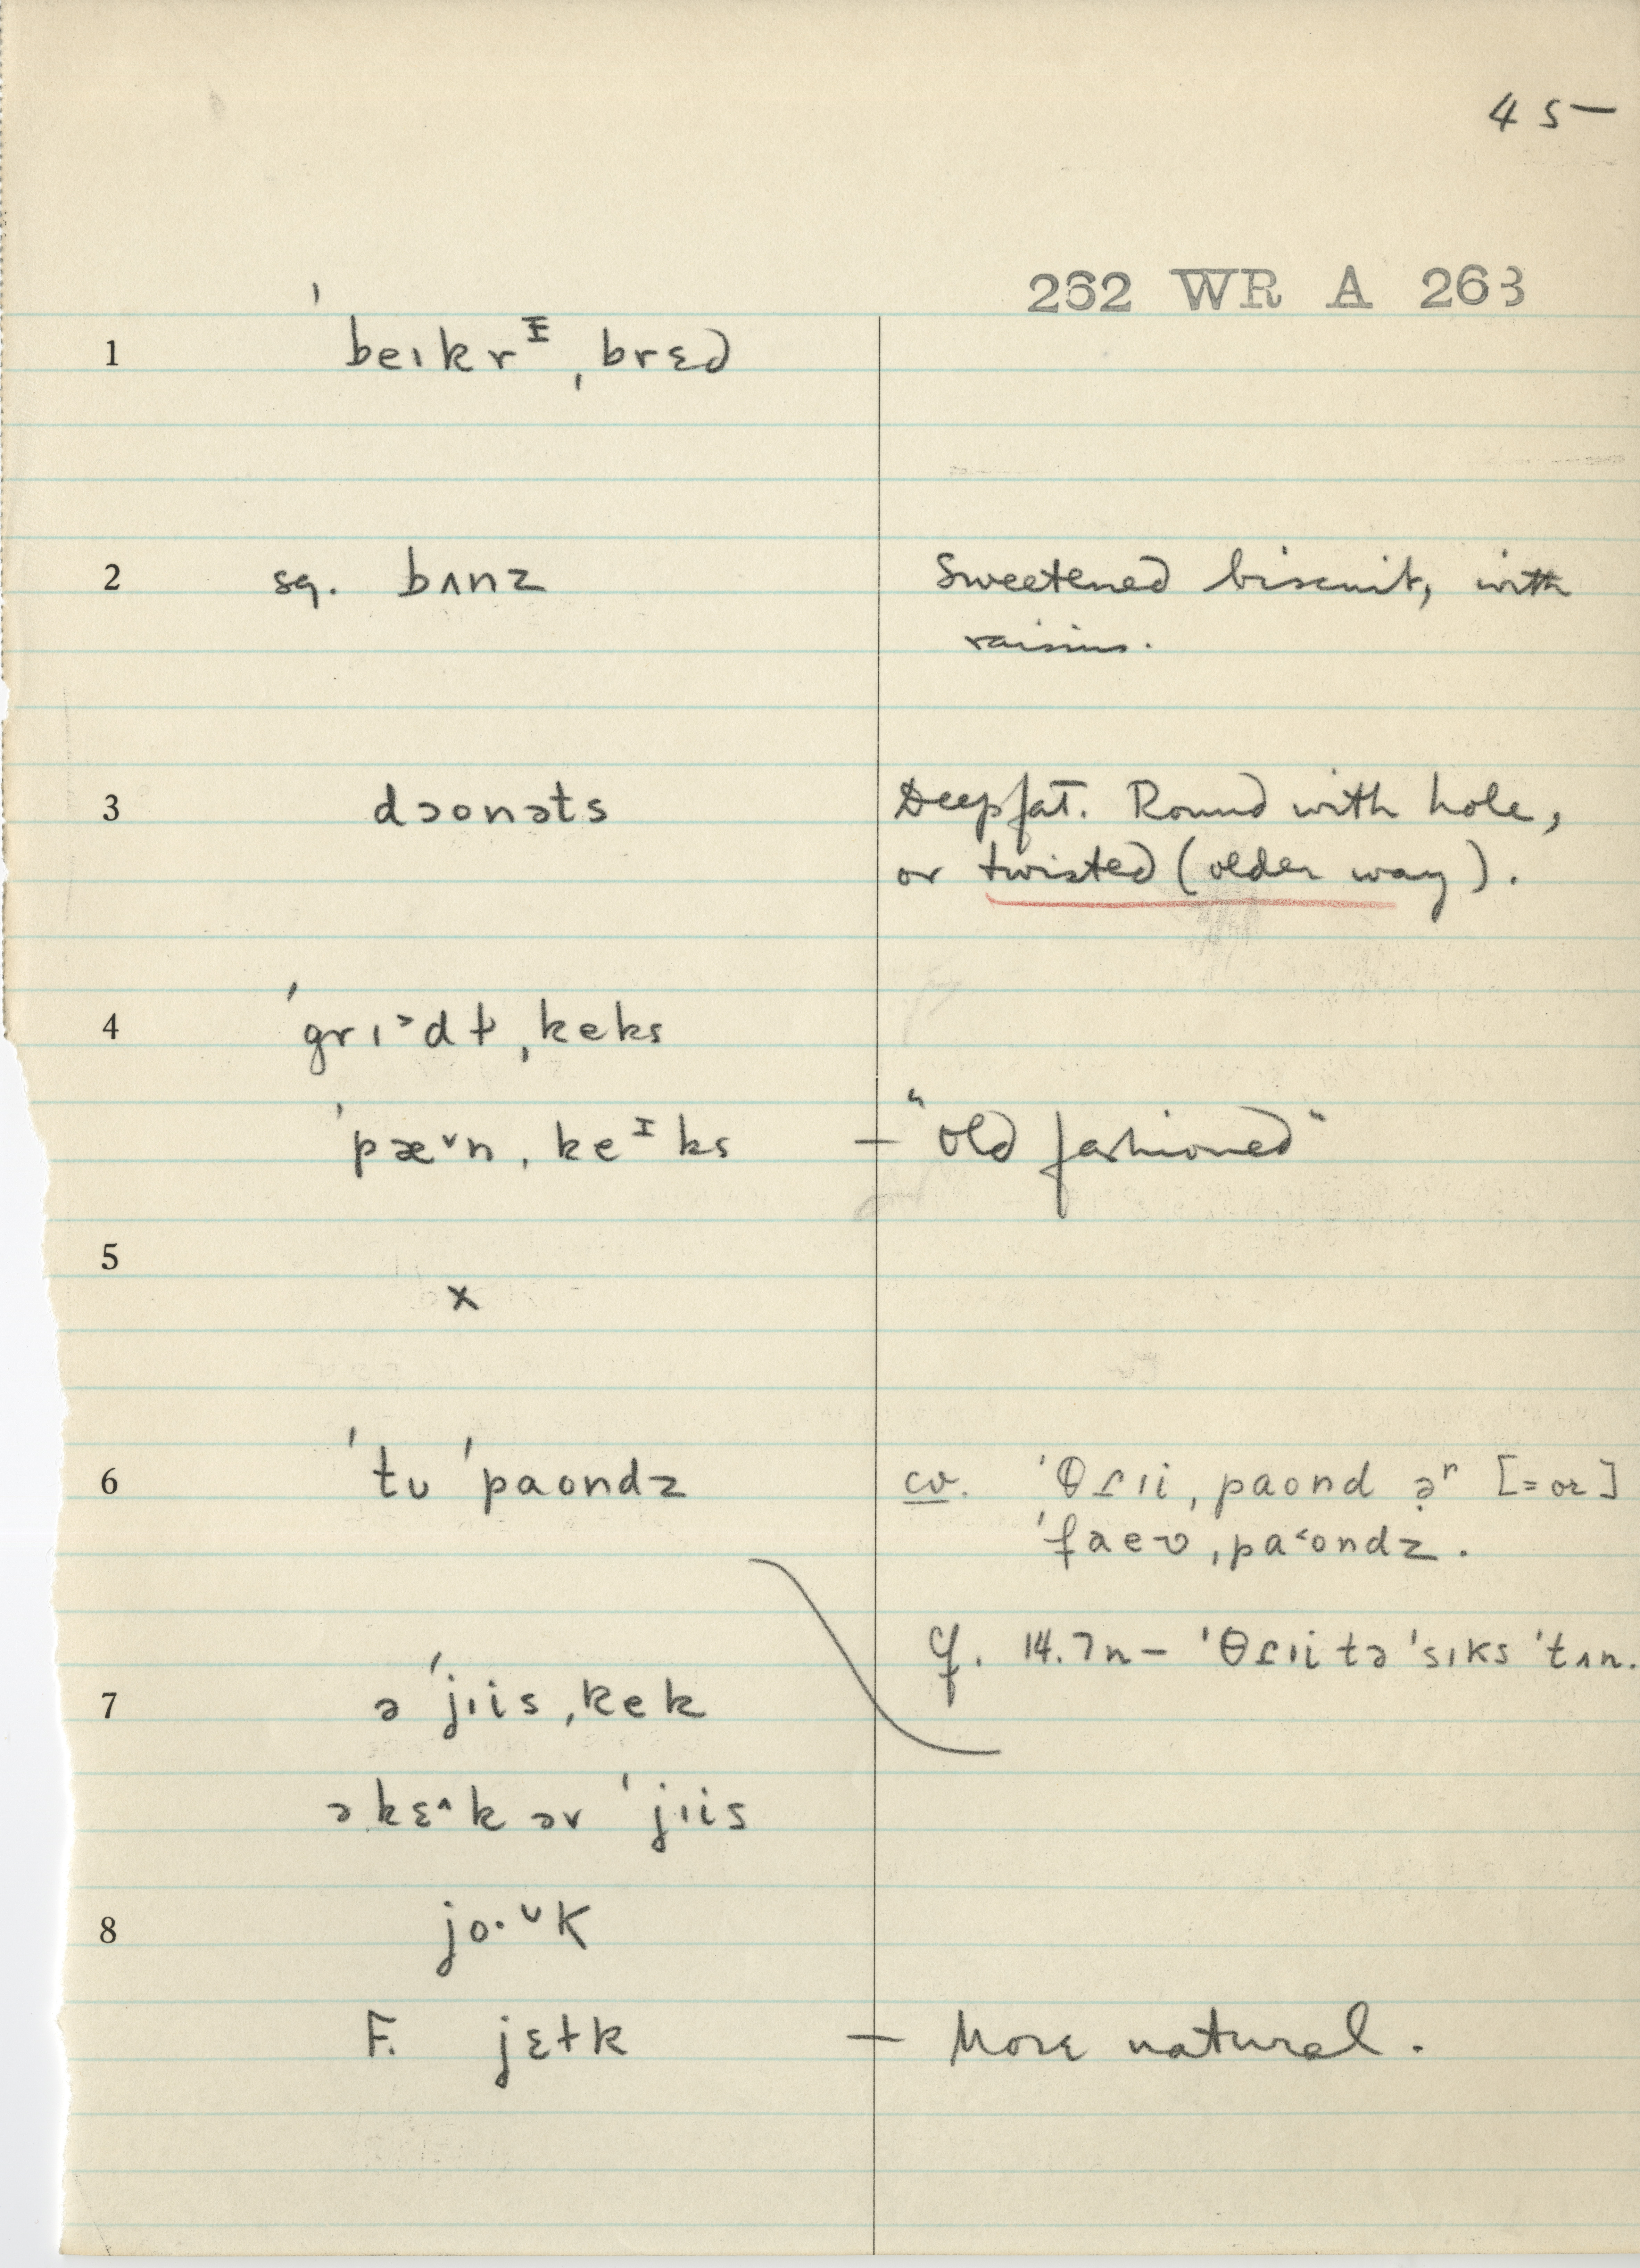 45—
262 WR A 263
1 ˈbeɪkrᶦˌbrɛd
2 sq. bʌnz Sweetened biscuit, with
raisins.
3 dɔonəts Deepfat. Round with hole,
or twisted (older way).
4 ˈgrɪ˃dɫˌkeks
ˈpæ˅nˌkeᶦks — "Old fashioned"
5 x
6 ˈtʊ ˈpaondz cv. ˈθɾɪiˌpaond ə̣ʳ [=or]
ˈfaevˌpa˂ondz.
cf. 14.7n— ˈθɾɪi tə ˈsɪks ˈtʌn.
7 ə ˈjɪisˌkek
ə kɛ^k əv ˈjɪis
8 jo·ᵛk
F. jɛɫk — More natural.